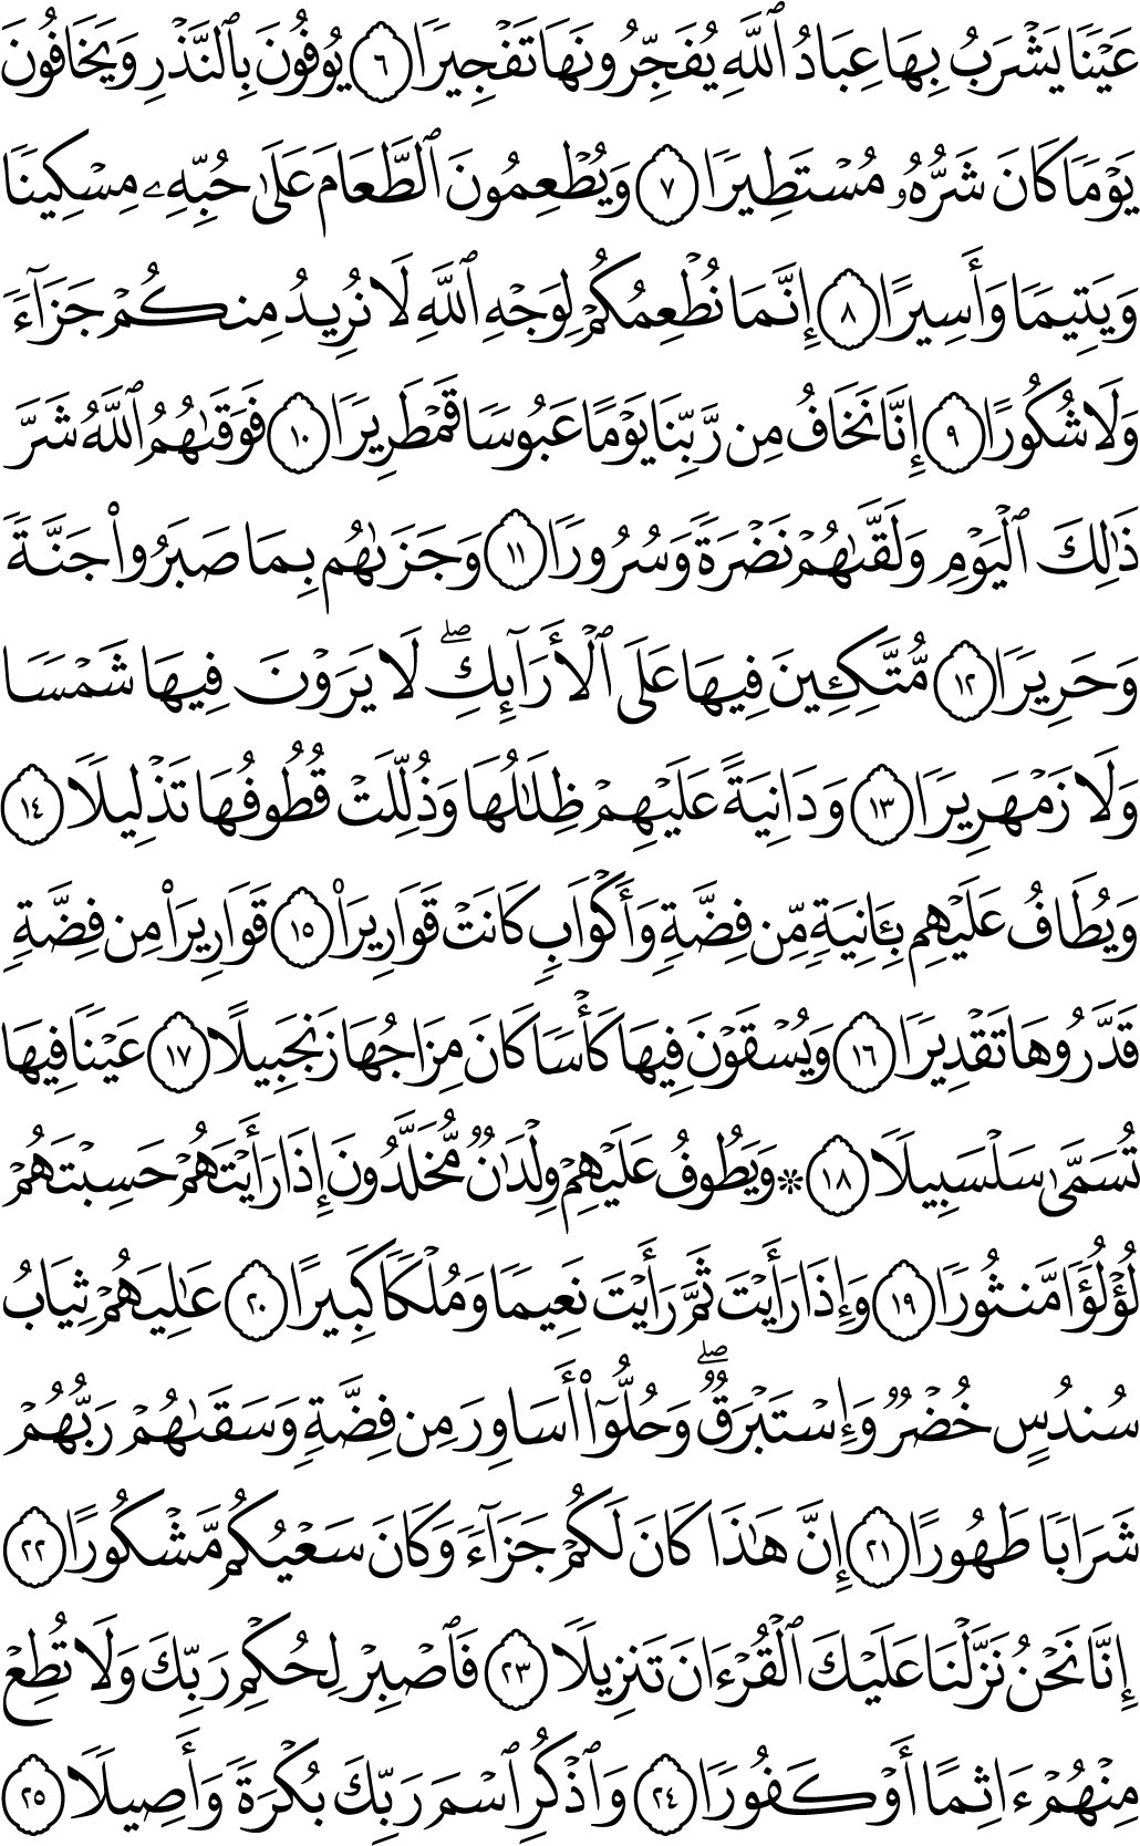 عَيْنًا يَشْرَبُ بِهَا عِبَادُ ٱللَّهِ يُفَجِّرُونَهَا تَفْجِيرًا ٦ يُوفُونَ بِٱلنَّذْرِ وَيَخَافُونَ
يَوْمًا كَانَ شَرُّهُۥ مُسْتَطِيرًا ٧ وَيُطْعِمُونَ ٱلطَّعَامَ عَلَىٰ حُبِّهِۦ مِسْكِينًا
وَيَتِيمًا وَأَسِيرًا ٨ إِنَّمَا نُطْعِمُكُمْ لِوَجْهِ ٱللَّهِ لَا نُرِيدُ مِنكُمْ جَزَآءً
وَلَا شُكُورًا ٩ إِنَّا نَخَافُ مِن رَّبِّنَا يَوْمًا عَبُوسًا قَمْطَرِيرًا ١٠ فَوَقَىٰهُمُ ٱللَّهُ شَرَّ
ذَٰلِكَ ٱلْيَوْمِ وَلَقَّىٰهُمْ نَضْرَةً وَسُرُورًا ١١ وَجَزَىٰهُم بِمَا صَبَرُوا۟ جَنَّةً
وَحَرِيرًا ١٢ مُّتَّكِـِٔينَ فِيهَا عَلَى ٱلْأَرَآئِكِ ۖ لَا يَرَوْنَ فِيهَا شَمْسًا
وَلَا زَمْهَرِيرًا ١٣ وَدَانِيَةً عَلَيْهِمْ ظِلَٰلُهَا وَذُلِّلَتْ قُطُوفُهَا تَذْلِيلًا ١٤
وَيُطَافُ عَلَيْهِم بِـَٔانِيَةٍ مِّن فِضَّةٍ وَأَكْوَابٍ كَانَتْ قَوَارِيرَا۠ ١٥ قَوَارِيرَا۟ مِن فِضَّةٍ
قَدَّرُوهَا تَقْدِيرًا ١٦ وَيُسْقَوْنَ فِيهَا كَأْسًا كَانَ مِزَاجُهَا زَنجَبِيلًا ١٧ عَيْنًا فِيهَا
تُسَمَّىٰ سَلْسَبِيلًا ١٨ ۞ وَيَطُوفُ عَلَيْهِمْ وِلْدَٰنٌ مُّخَلَّدُونَ إِذَا رَأَيْتَهُمْ حَسِبْتَهُمْ
لُؤْلُؤًا مَّنثُورًا ١٩ وَإِذَا رَأَيْتَ ثَمَّ رَأَيْتَ نَعِيمًا وَمُلْكًا كَبِيرًا ٢٠ عَٰلِيَهُمْ ثِيَابُ
سُندُسٍ خُضْرٌ وَإِسْتَبْرَقٌ ۖ وَحُلُّوٓا۟ أَسَاوِرَ مِن فِضَّةٍ وَسَقَىٰهُمْ رَبُّهُمْ
شَرَابًا طَهُورًا ٢١ إِنَّ هَٰذَا كَانَ لَكُمْ جَزَآءً وَكَانَ سَعْيُكُم مَّشْكُورًا ٢٢
إِنَّا نَحْنُ نَزَّلْنَا عَلَيْكَ ٱلْقُرْءَانَ تَنزِيلًا ٢٣ فَٱصْبِرْ لِحُكْمِ رَبِّكَ وَلَا تُطِعْ
مِنْهُمْ ءَاثِمًا أَوْ كَفُورًا ٢٤ وَٱذْكُرِ ٱسْمَ رَبِّكَ بُكْرَةً وَأَصِيلًا ٢٥